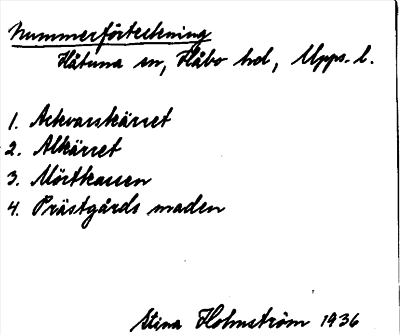 Nummerförteckning
Håtuna sn, Håbo hd, Upps. l.
1. Ackvarskärret
2. Alkärret
3. Mörtkassen
4. Prästgårds maden
Stina Holmström 1936